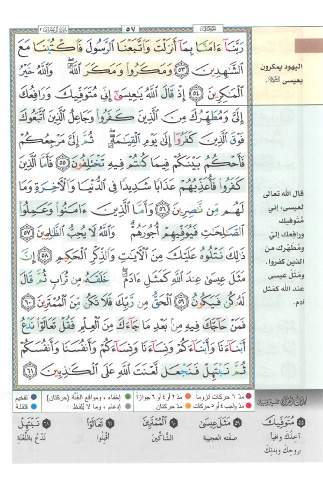 ٥٧
رَبَّنَآ ءَامَنَّا بِمَآ أَنزَلْتَ وَٱتَّبَعْنَا ٱلرَّسُولَ فَٱكْتُبْنَا مَعَ
ٱلشَّٰهِدِينَ ٥٣ وَمَكَرُوا۟ وَمَكَرَ ٱللَّهُ وَٱللَّهُ خَيْرُ
ٱلْمَٰكِرِينَ ٥٤ إِذْ قَالَ ٱللَّهُ يَٰعِيسَىٰٓ إِنِّى مُتَوَفِّيكَ وَرَافِعُكَ
إِلَىَّ وَمُطَهِّرُكَ مِنَ ٱلَّذِينَ كَفَرُوا۟ وَجَاعِلُ ٱلَّذِينَ ٱتَّبَعُوكَ
فَوْقَ ٱلَّذِينَ كَفَرُوٓا۟ إِلَىٰ يَوْمِ ٱلْقِيَٰمَةِ ثُمَّ إِلَىَّ مَرْجِعُكُمْ
فَأَحْكُمُ بَيْنَكُمْ فِيمَا كُنتُمْ فِيهِ تَخْتَلِفُونَ ٥٥ فَأَمَّا ٱلَّذِينَ
كَفَرُوا۟ فَأُعَذِّبُهُمْ عَذَابًا شَدِيدًا فِى ٱلدُّنْيَا وَٱلْءَاخِرَةِ وَمَا
لَهُم مِّن نَّٰصِرِينَ ٥٦ وَأَمَّا ٱلَّذِينَ ءَامَنُوا۟ وَعَمِلُوا۟
ٱلصَّٰلِحَٰتِ فَيُوَفِّيهِمْ أُجُورَهُمْ وَٱللَّهُ لَا يُحِبُّ ٱلظَّٰلِمِينَ ٥٧
ذَٰلِكَ نَتْلُوهُ عَلَيْكَ مِنَ ٱلْءَايَٰتِ وَٱلذِّكْرِ ٱلْحَكِيمِ ٥٨ إِنَّ
مَثَلَ عِيسَىٰ عِندَ ٱللَّهِ كَمَثَلِ ءَادَمَ خَلَقَهُۥ مِن تُرَابٍ ثُمَّ قَالَ
لَهُۥ كُن فَيَكُونُ ٥٩ ٱلْحَقُّ مِن رَّبِّكَ فَلَا تَكُن مِّنَ ٱلْمُمْتَرِينَ ٦٠
فَمَنْ حَآجَّكَ فِيهِ مِنۢ بَعْدِ مَا جَآءَكَ مِنَ ٱلْعِلْمِ فَقُلْ تَعَالَوْا۟ نَدْعُ
أَبْنَآءَنَا وَأَبْنَآءَكُمْ وَنِسَآءَنَا وَنِسَآءَكُمْ وَأَنفُسَنَا وَأَنفُسَكُمْ
ثُمَّ نَبْتَهِلْ فَنَجْعَل لَّعْنَتَ ٱللَّهِ عَلَى ٱلْكَٰذِبِينَ ٦١
اليهود يمكرون
بعيسى
قال الله تعالى
لعيسى: إني
متوفيك
ورافعك إلي
ومطهرك من
الذين كفروا.
ومثل عيسى
عند الله كمثل
آدم.
مدّ ٦ حركات لزوماً مدّ ٢ أو ٤ أو ٦ جوازاً إخفاء، ومواقع الغُنَّة (حركتان) تفخيم
مدّ واجب ٤ أو ٥ حركات مدّ حركتان إدغام، وما لا يُلفَظ قلقلة
مُتَوَفِّيكَ
آخذك وافياً
بروحك وبدنك
مَثَلَ عِيسَىٰ
صفته العجيبة
ٱلْمُمْتَرِينَ
الشاكّين
تَعَالَوْا۟
أقبلوا
نَبْتَهِلْ
ندعُ باللعنة